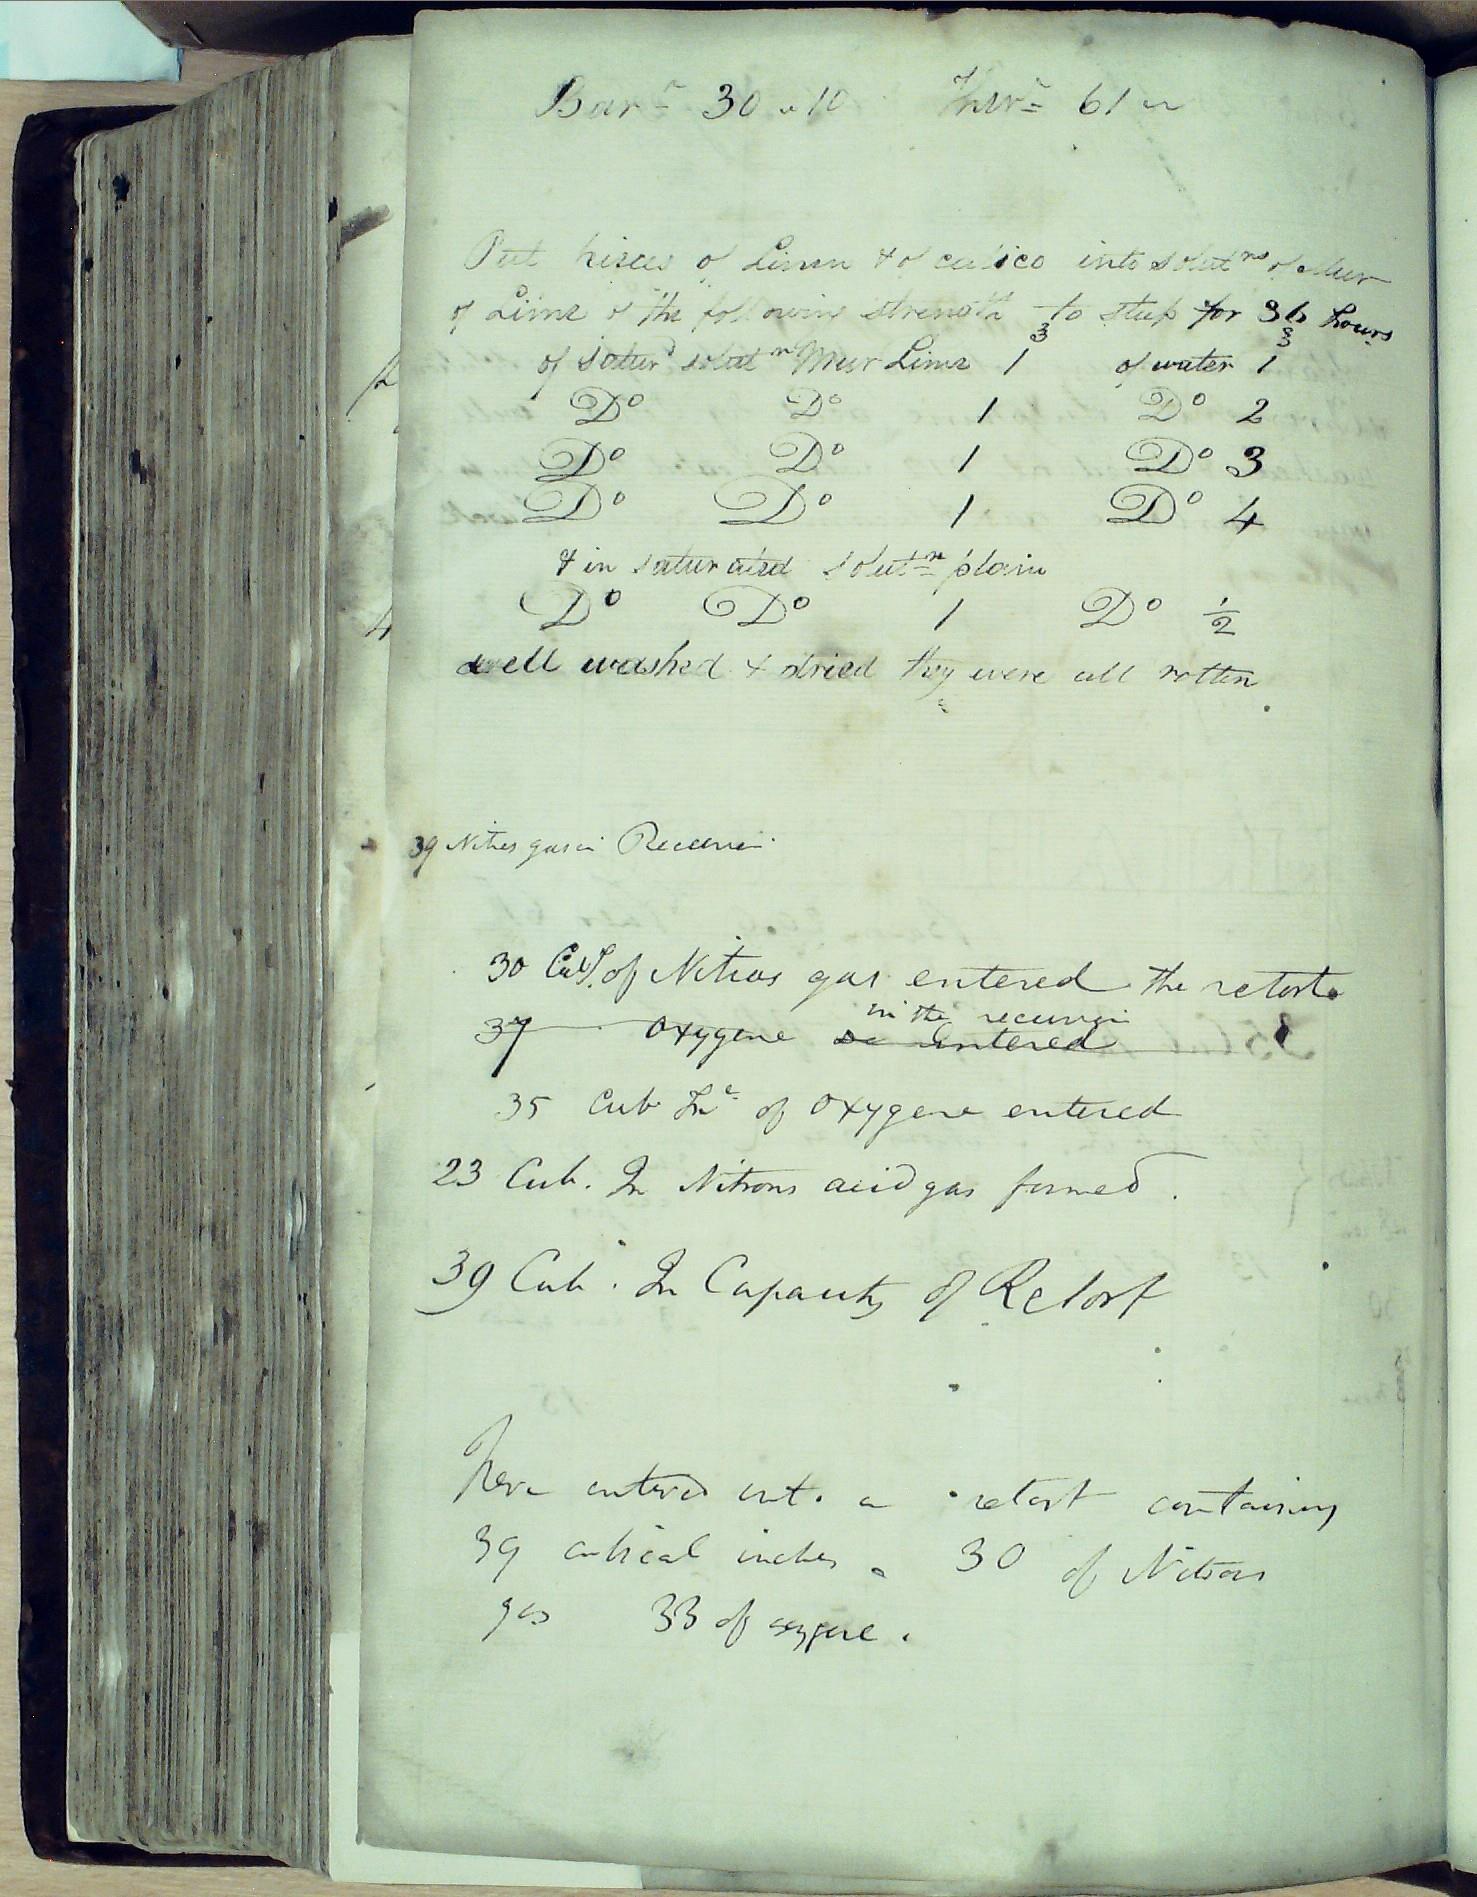 Bar.r 30 . 10 Ther.r 61
Put pieces of Linen & of calico into solut.ns of Mur
of Lime of the following strength to steep for 36 hours
3 3
of Satur.d solut.n Mur Lime 1 of water 1
D.o D.o 1 D.o 2
D.o D.o 1 D.o 3
D.o D.o 1 D.o 4
& in saturated solut.n plain
D.o D.o 1 D.o 1/2
well washed & dried they were all rotten.
39 Nitres gas in Receiver
30 Cub I. of Nitrous gas entered the retort
in the receiver
37 Oxygene entered
35 Cub In.s of Oxygene entered
23 Cub. In Nitrous acid gas formed.
39 Cub. In Capacity of Retort
There entered into a retort containing
39 cubical inches 30 of Nitrous
gas 33 of oxygene.